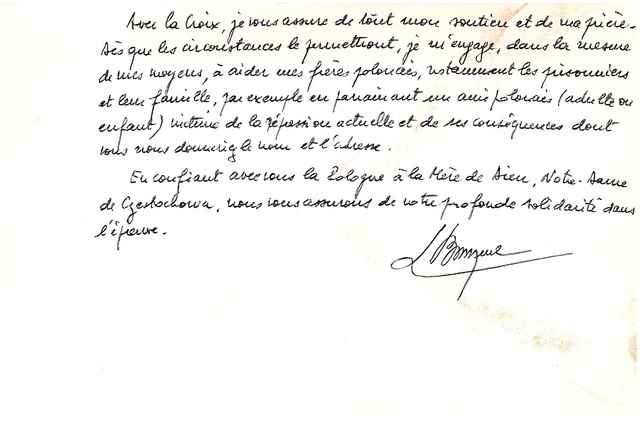 Avec la Croix, je vous assure de tout mon soutien et de ma prière.
Dès que les circonstances le permettront, je m'engage, dans la mesure
de mes moyens, à aider mes frères polonais, notamment les prisonniers
et leur famille, par exemple en parrainant un ami polonais (adulte ou
enfant) victime de la répression actuelle et de ses conséquences dont
vous nous donneriez le nom et l'adresse.
En confiant avec vous la Pologne à la Mère de Dieu, Notre-Dame
de Czestochowa, nous vous assurons de notre profonde solidarité dans
l'épreuve.